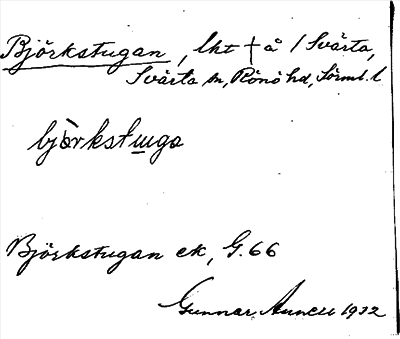 Björkstugan, lht † å / Svärta,
Svärta sn, Rönö hd, Sörml. l
bjö̀rkstɯgɑ
Björkstugan ek, G. 66
Gunnar 1932